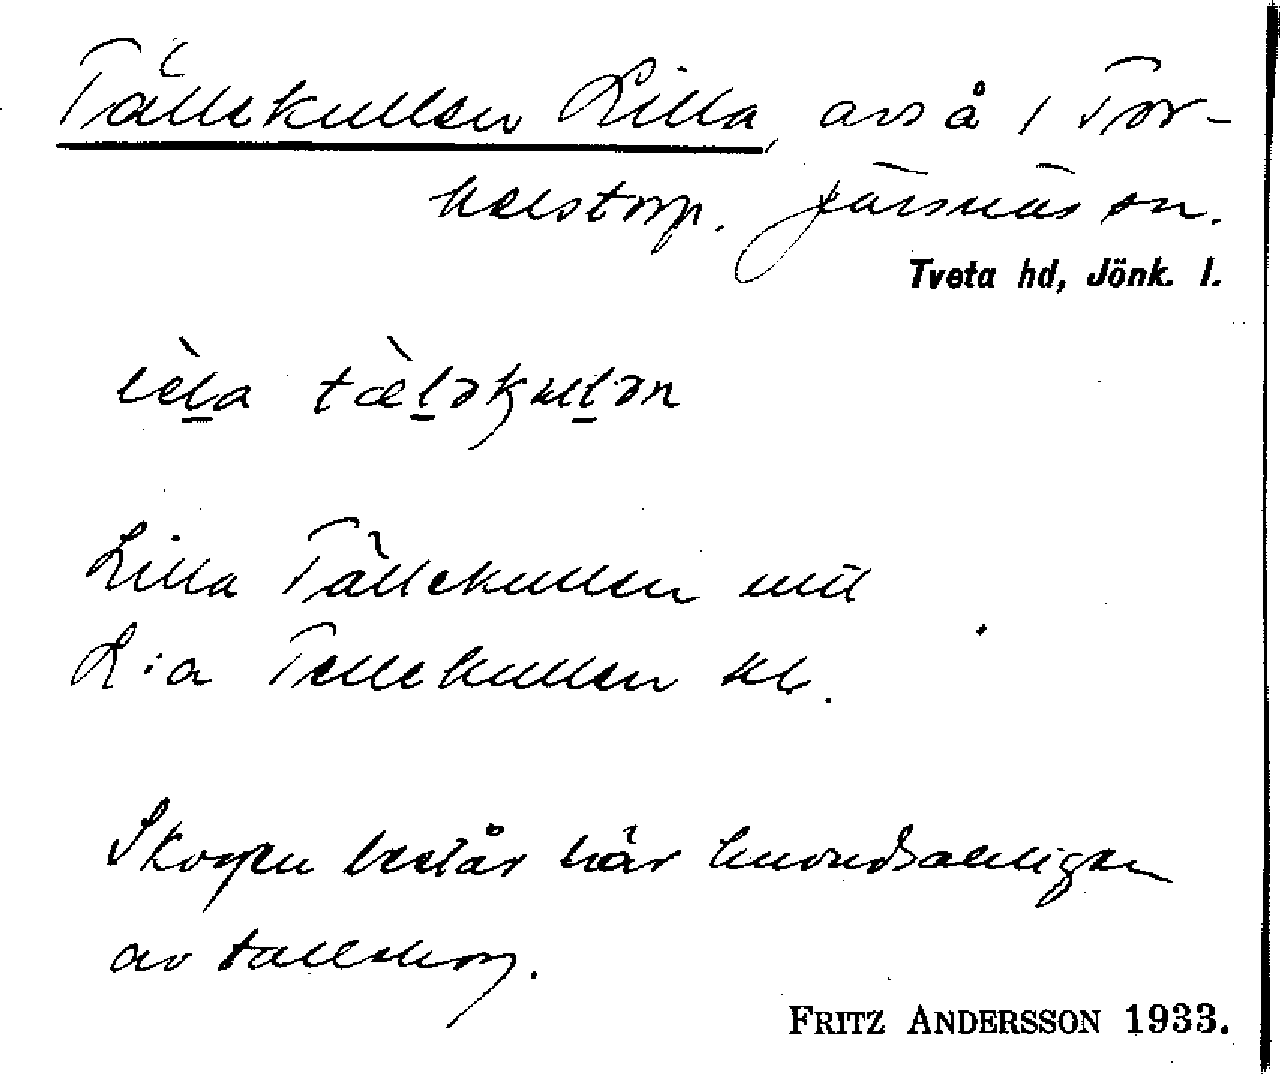 Tällekullen Lilla, avs å 1 Tor-
kelstorp. Järsnäs sn.
Tveta hd, Jönk. l.
lèl̲a tæ̀l̲əkul̲ən
Lilla Tällekullen
L:a Tellekullen
Skogen består här huvudsakligen
av tallskog.
FRITZ ANDERSSON 1933.